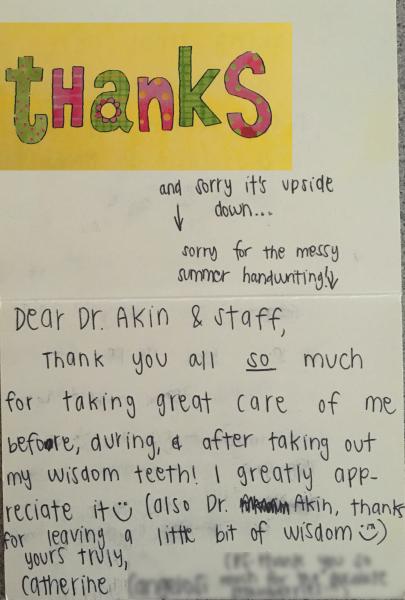 thanks
and sorry it's upside
down...
sorry for the messy
summer handwriting!
Dear Dr. Akin & staff,
Thank you all so much
for taking great care of me
before, during, & after taking out
my wisdom teeth! I greatly app-
reciate it (also Dr. Akin, thanks
for leaving a little bit of wisdom )
yours truly,
Catherine